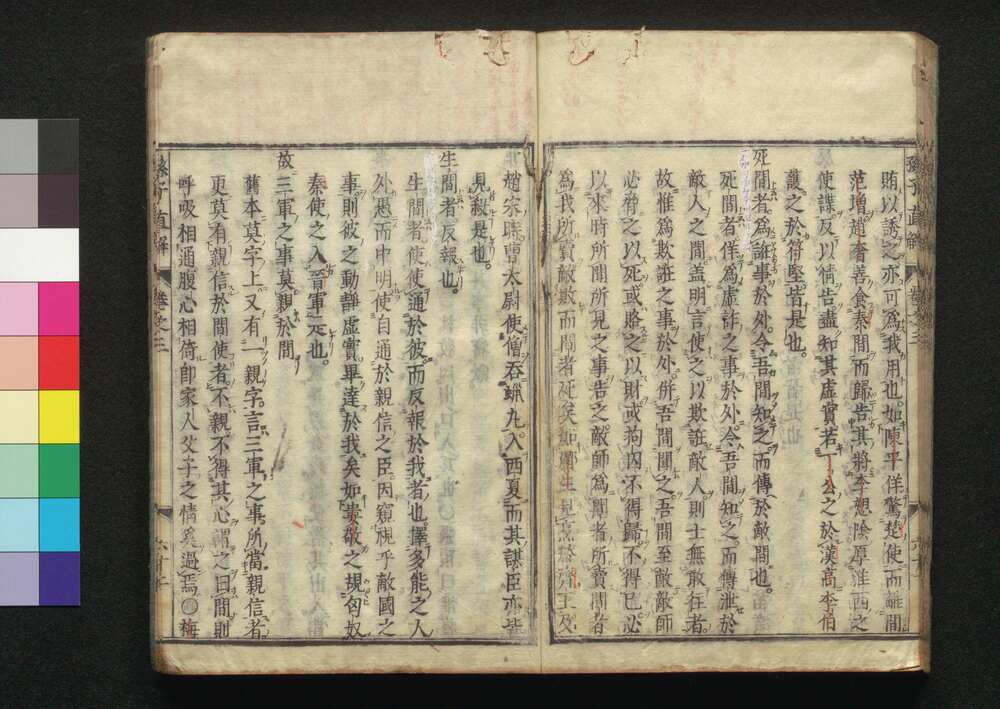 賂以誘之亦可爲我用也如陳平佯驚楚使而離間
范增趙奢善食秦間而歸告其將李愬陰厚淮西之
使諜反以情告盡知其虛實若丁公之於漢高李伯
護之於符堅皆是也
死間者爲誑事於外令吾間知之而傳於敵間也
死間者佯爲虛詐之事於外令吾間知之而傳泄於
敵人之間蓋明言使之以欺誑敵人則士無敢往者
故惟爲欺誑之事於外併吾間聞之吾間至敵敵師
必脅之以死或賂之以財或拘囚不得歸不得已必
以來時所聞所見之事告之敵師爲間者所賣間者
爲我所賣敵敗而間者死矣如酈生見烹於齊王及
趙宋時曹太尉使僧吞蠟丸入西夏而其謀臣亦皆
見殺是也
生間者反報也
生間者使使通於彼而反報於我者也擇多能之人
外愚而中明使自通於親信之臣因窺視乎敵國之
事則彼之動靜虛實畢達於我矣如婁敬之覘匈奴
秦使之入晉軍是也
故三軍之事莫親於間
舊本莫字上又有一親字言三軍之事所當親信者
更莫有親信於間使者不親不得其心謂之曰間則
呼吸相通腹心相倚卽家人父子之情奚過焉○梅
孫子直解
卷之三